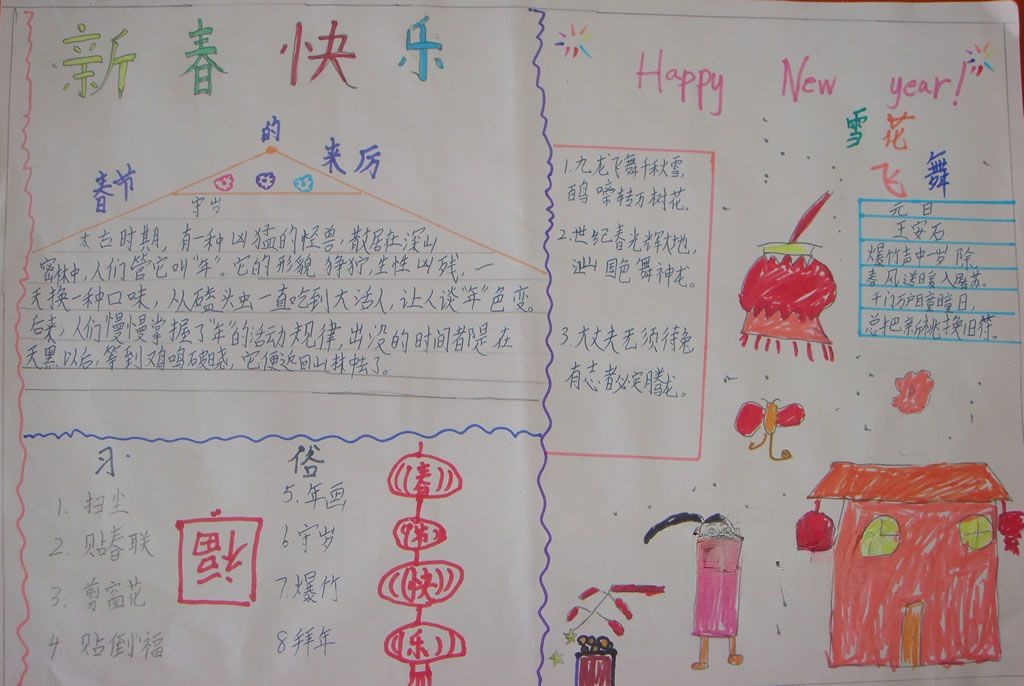 新春快乐
春节的来历
守岁
太古时期，有一种凶猛的怪兽，散居在深山
密林中，人们管它叫“年”。它的形貌狰狞，生性凶残，一
天换一种口味，从磕头虫一直吃到大活人，让人谈“年”色变。
后来，人们慢慢掌握了“年”的活动规律，出没的时间都是在
天黑以后，等到鸡鸣破晓，它便返回山林去了。
习俗
1. 扫尘
2. 贴春联
3. 剪窗花
4. 贴倒“福
福
5. 年画
6. 守岁
7. 爆竹
8 拜年
春
节
快
乐
Happy New year!
1. 九龙飞舞千秋雪，
百鸟啼转万树花。
2. 世纪春光辉大地，
山国色舞神龙。
3. 大丈夫无须待兔
有志者必定腾龙。
雪花
飞舞
元日
王安石
爆竹声中一岁除
春风送暖入屠苏。
千门万户曈曈日，
总把新桃换旧符。